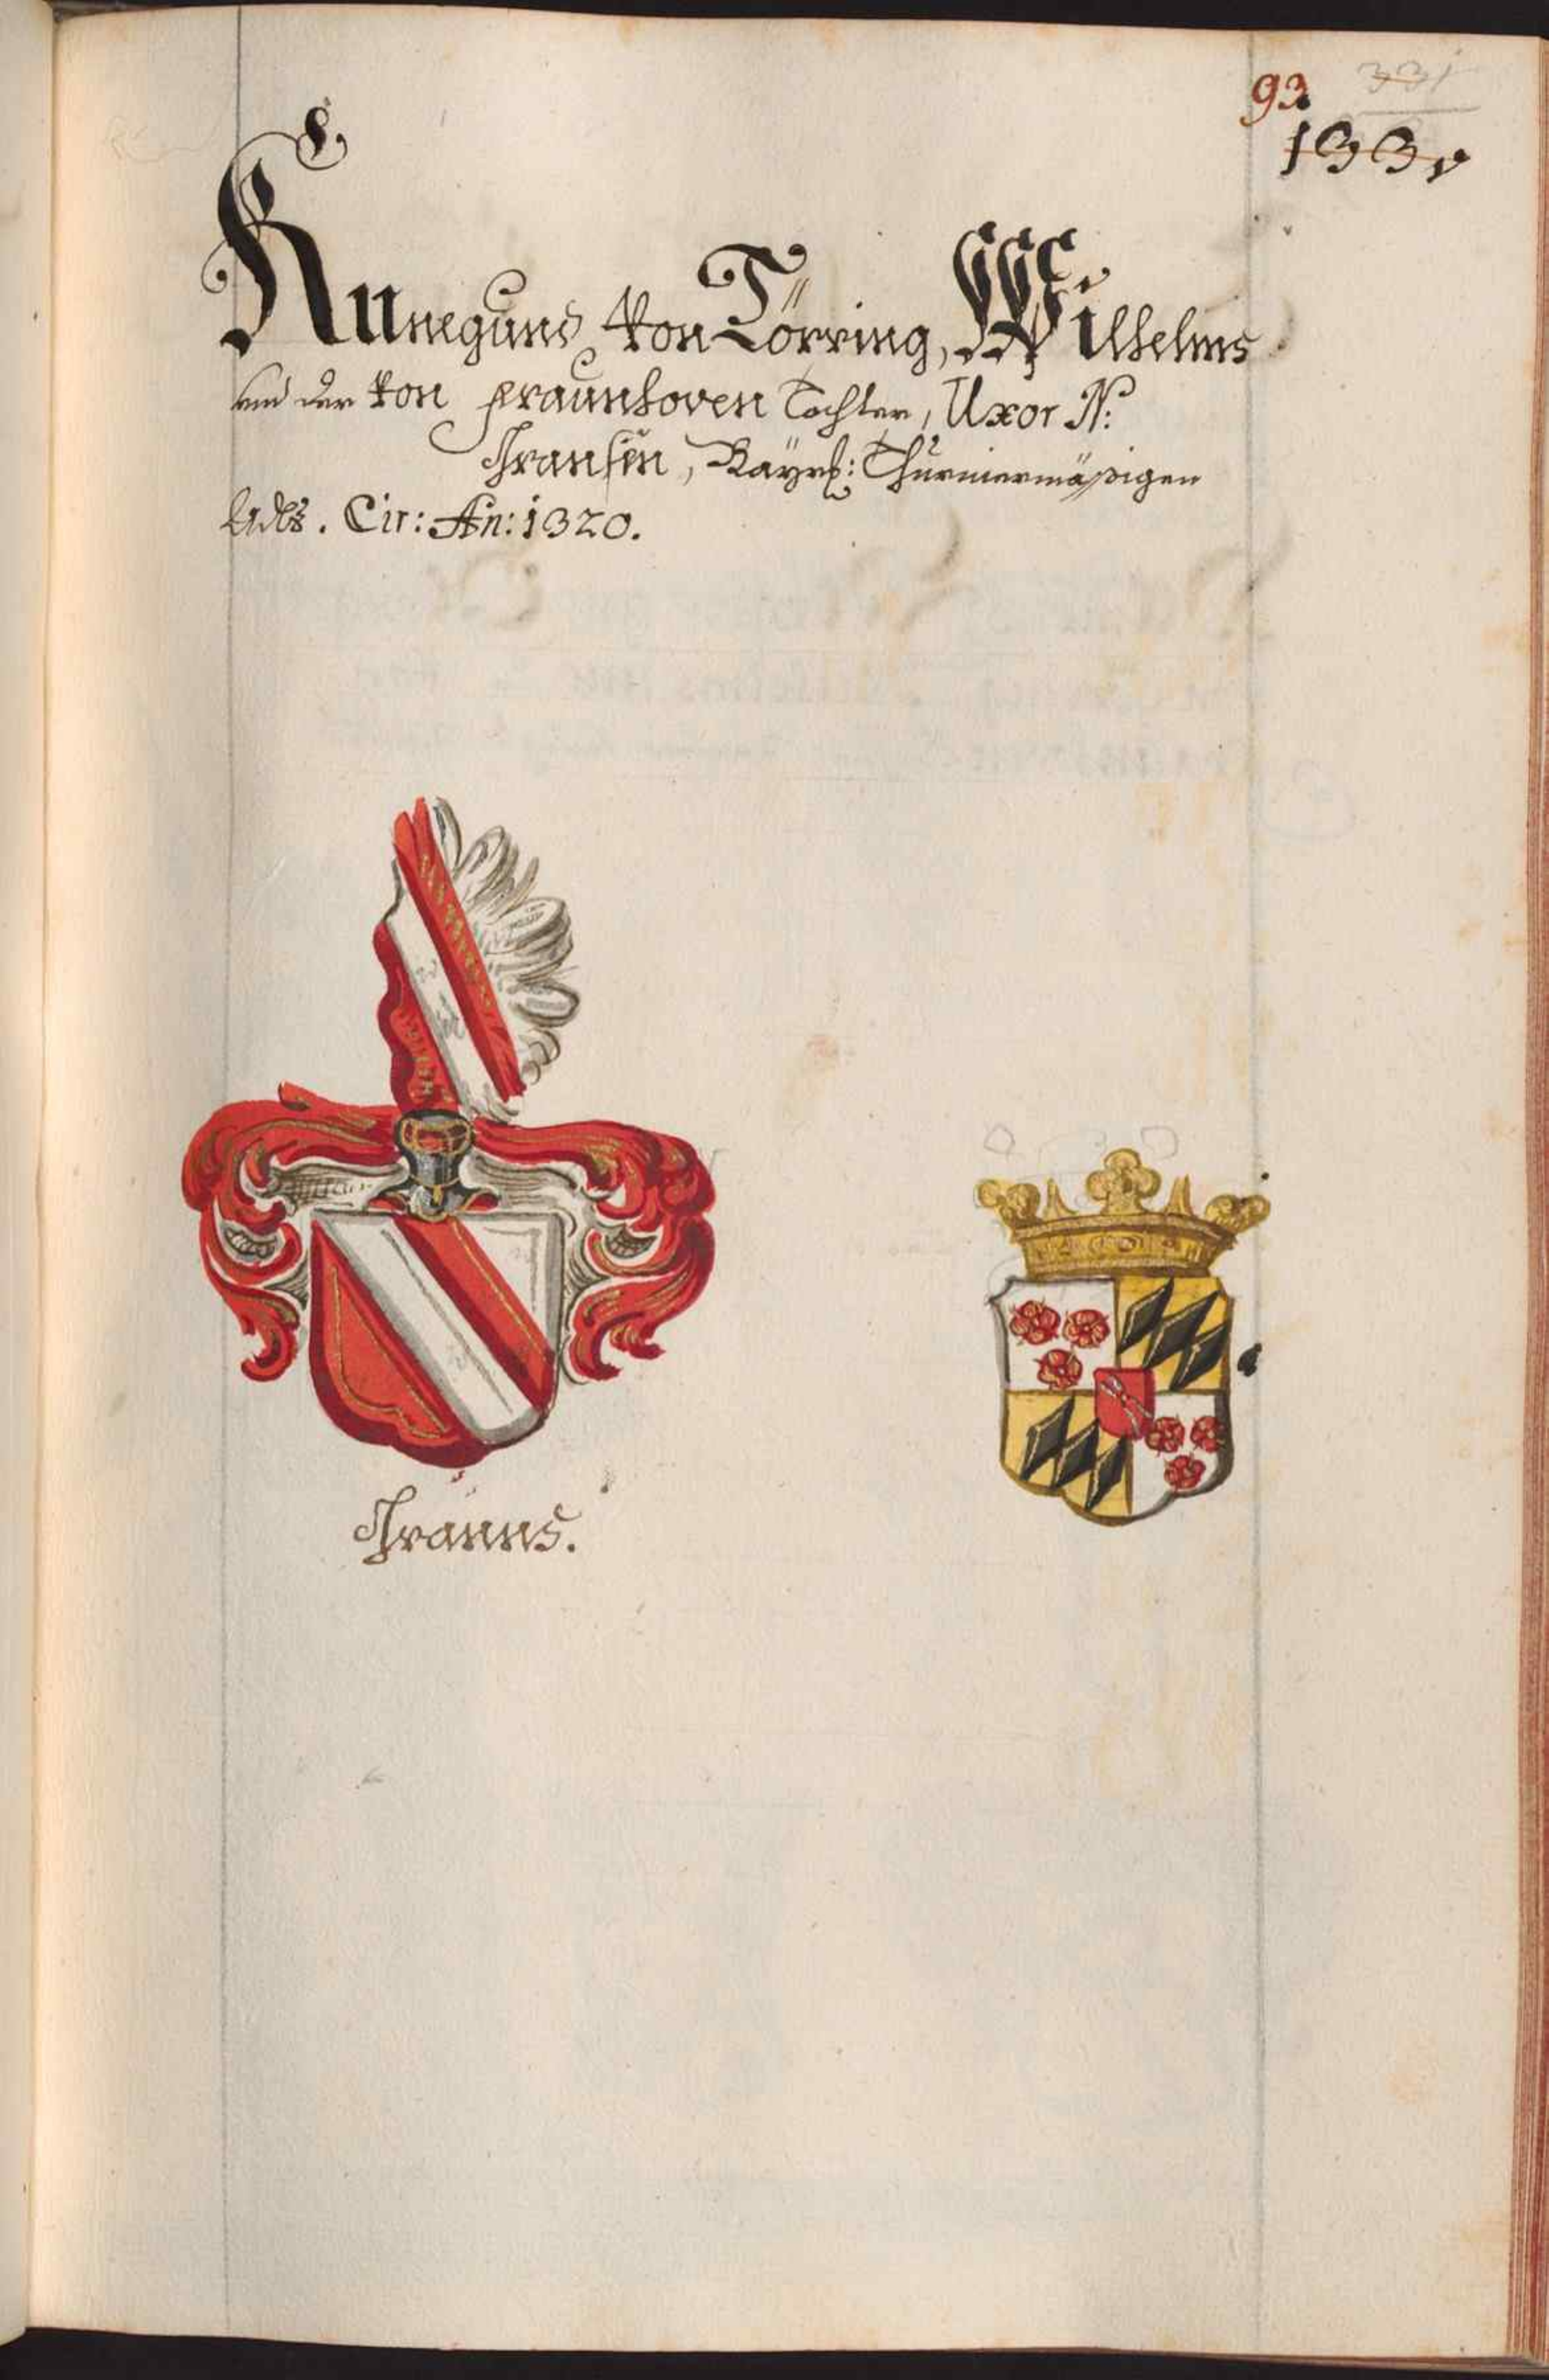 93 331
133.
Kunegund von Törring, Wilhelms
und der von Fraunhoven Tochter, Uxor N:
Transen, Bayrl: Thurniermäßigen
Adls. Cir: An: 1320.
Tranns.